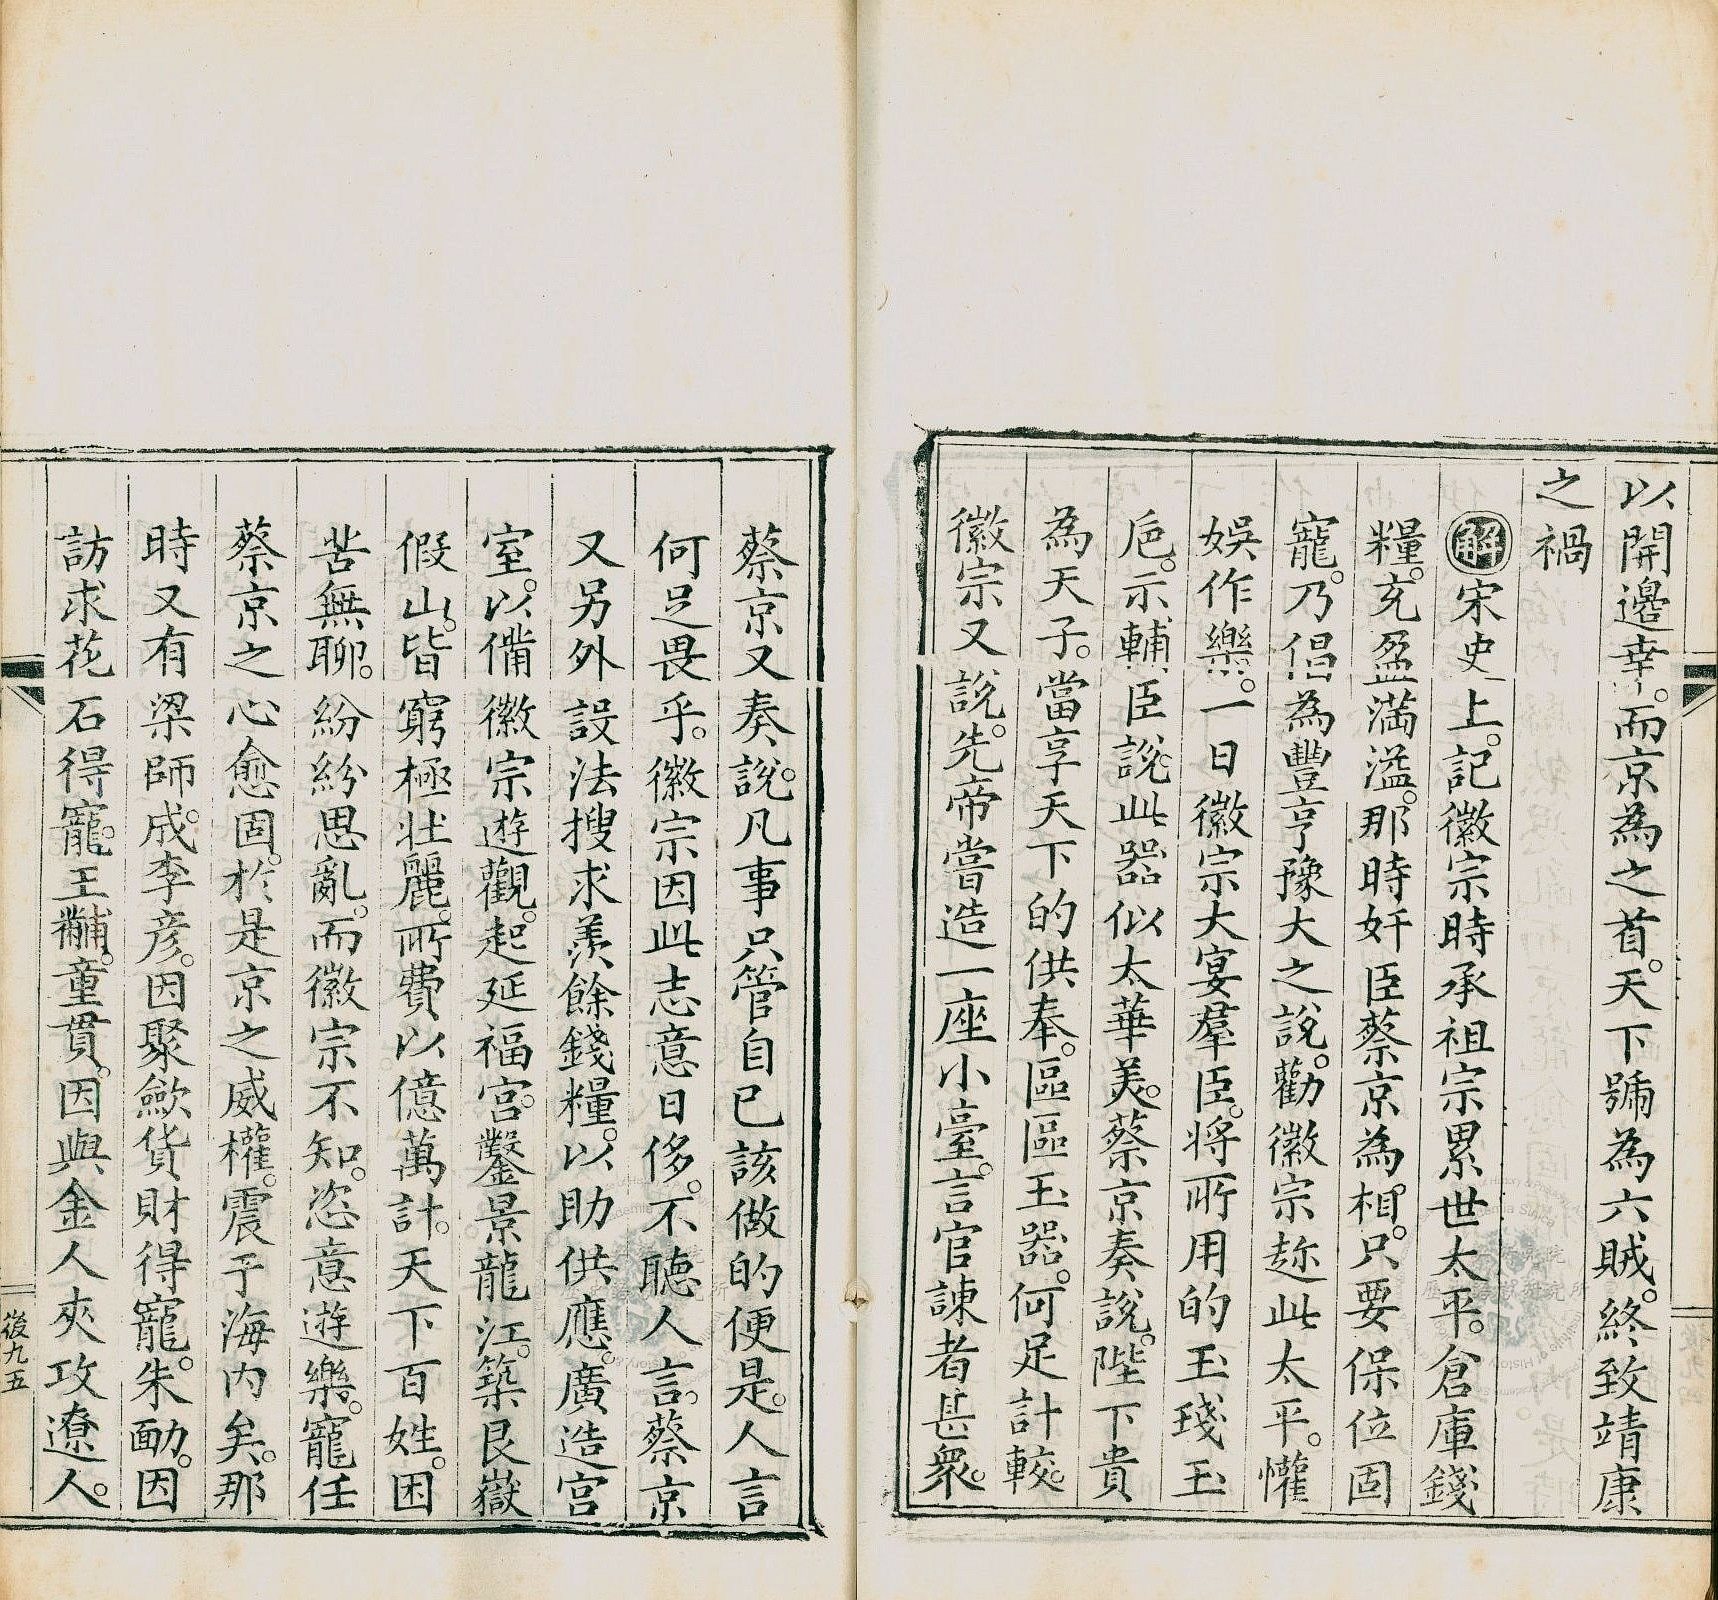 以開邊幸。而京為之首。天下號為六賊。終致靖康
之禍
解宋史上。記徽宗時承祖宗累世太平。倉庫錢
糧。充盈滿溢。那時奸臣蔡京為相。只要保位固
寵。乃倡為豐亨豫大之說。勸徽宗趂此太平。懽
娛作樂。一日徽宗大宴羣臣。將所用的玉琖玉
巵。示輔臣說此器似太華美。蔡京奏說。陛下貴
為天子。當享天下的供奉。區區玉器。何足計較。
徽宗又說。先帝嘗造一座小臺。言官諫者甚衆。
蔡京又奏說。凡事只管自己該做的便是。人言
何足畏乎。徽宗因此志意日侈。不聽人言。蔡京
又另外設法搜求羨餘錢糧。以助供應。廣造宮
室。以備徽宗遊觀。起延福宮。鑿景龍江。築艮嶽
假山。皆窮極壯麗。所費以億萬計。天下百姓。困
苦無聊。紛紛思亂。而徽宗不知。恣意遊樂。寵任
蔡京之心愈固。於是京之威權。震于海內矣。那
時又有梁師成。李彥。因聚歛貨財得寵。朱勔。因
訪求花石得寵。王黼。童貫。因與金人夾攻遼人。
後九五